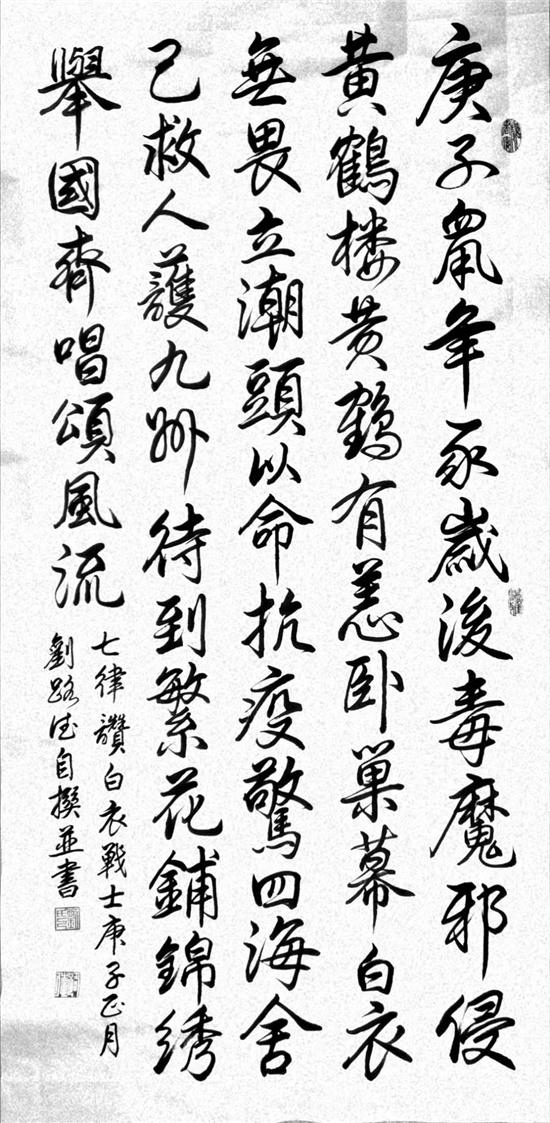 庚子鼠年豕歲後毒魔邪侵
黃鶴楼黃鶴有恙卧巢幕白衣
無畏立潮頭以命抗疫驚四海舍
己救人護九州待到繁花鋪錦綉
舉國齊唱頌風流
七律讚白衣戰士庚子正月
劉路德自撰並書